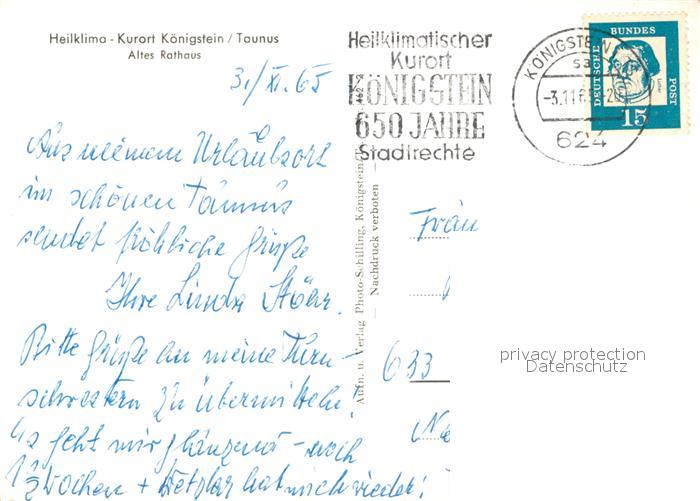 Heilklima - Kurort Königstein / Taunus
Altes Rathaus
3./XI. 65
Heilklimatischer
Kurort
KÖNIGSTEIN
650 JAHRE
Stadtrechte
KÖNIGSTEIN
-3.11.6
624
DEUTSCHE BUNDESPOST
15
Aus meinem Urlaubsort
im schönen Taunus
sendet fröhliche Grüße
Ihre Linda Stöhr.
Bitte Grüße an meine Turn-
schwestern zu übermitteln!
Es geht mir glänzend - noch
1 1/2 Wochen + Wetzlar hat mich wieder!
Aufn. u. Verlag Photo-Schilling, Königstein/T.
— Nachdruck verboten —
Frau
633
privacy protection
Datenschutz